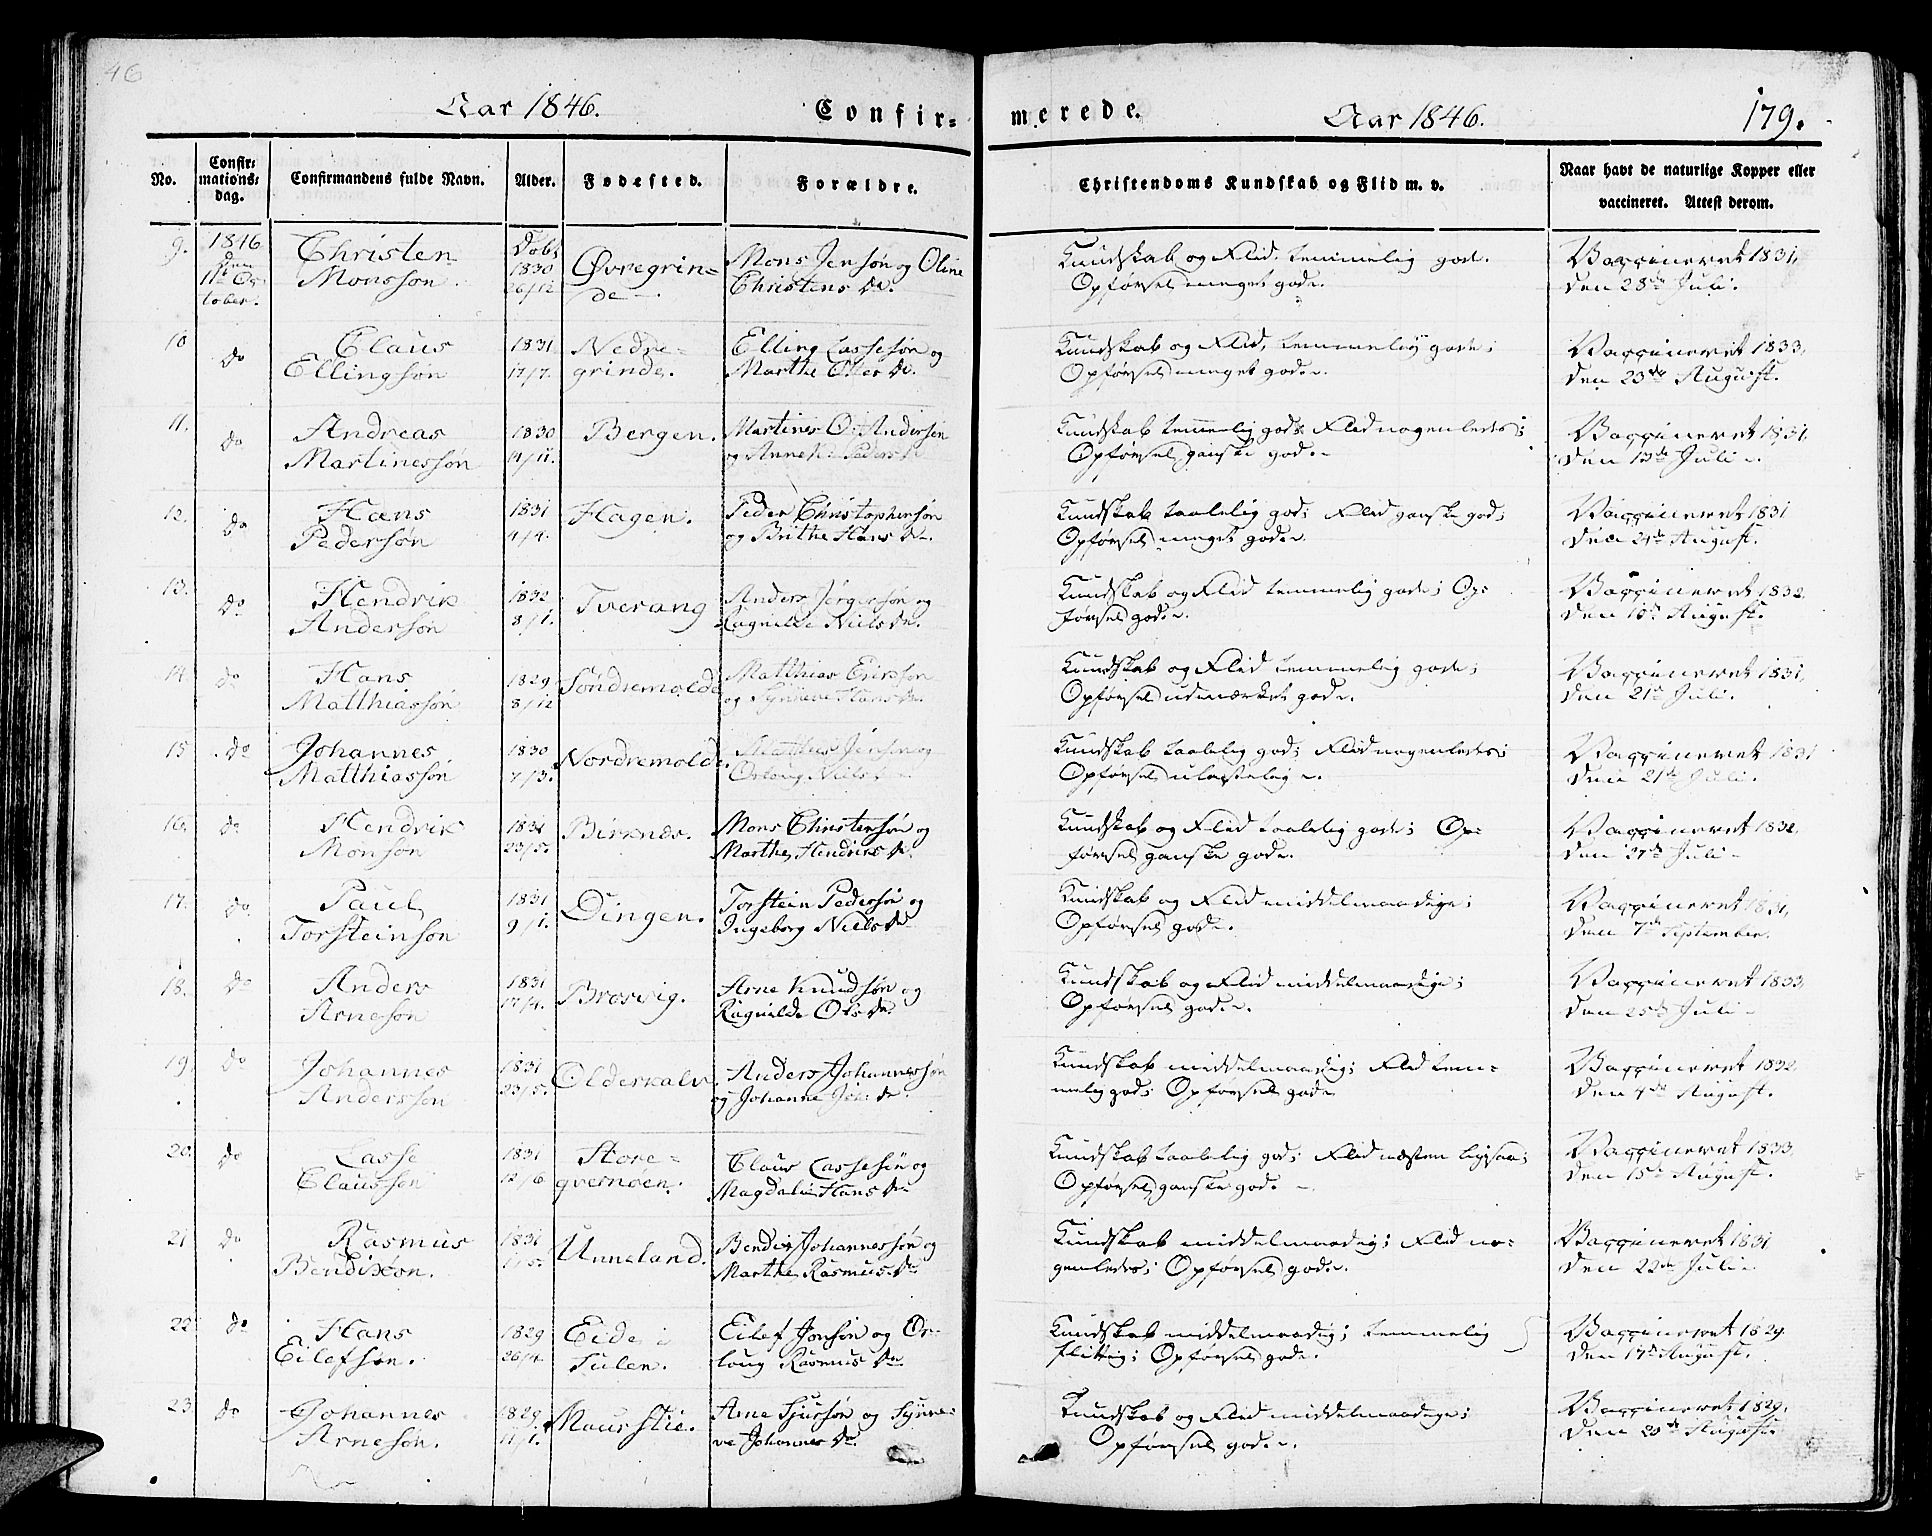 46
Aar 1846. Confir=
No. Confir=mations=dag. Confirmandens fulde Navn. Alder. Fødested. Forældre.
9. 1846 den 11te October. Christen Monssøn. Døbt 1830 26/12 Øvregrinde Mons Jensøn og Oline Christens Dr.
10 Do Claus Ellingsøn 1831 17/7. Nedregrinde. Elling Lassesøn og Marthe Oller Dr.
11. Do Andreas Martinessøn 1830 14/11. Bergen. Martines O. Andersøn og Anne K. Peders Dr
12. Do Hans Pedersøn 1831 4/4. Hagen. Peder Christophersøn og Brithe Hans Dr.
13. Do Hendrik Andersøn 1832 8/1. Tverang Anders Jørgensøn og Ragnilde Niels Dr.
14. Do Hans Matthiassøn 1829 8/12 Søndremolde Matthias Ericksøn og Synneve Hans Dr.
15 Do Johannes Matthiassøn 1830 7/3. Nordremolde. Matthias Jensøn og Orloug Niels Dr
16. Do Hendrik Monsøn 1831 23/5. Birknæs. Mons Christensøn og Marthe Hendriks Dr.
17. Do Paul Torsteinsøn 1831 9/1. Dingen. Torstein Pedersøn og Ingeborg Niels Dr
18. Do Anders Arnesøn 1831 17/4. Brosvig. Arne Knudsøn og Ragnilde Ols Dr.
19. Do Johannes Anderssøn 1831 23/5. Olderkalv. Anders Johannessøn og Johanne Joh. Dr.
20 Do Lasse Claussøn 1831 12/6 Storeqvernøen. Claus Lassesøn og Magdalie Hans Dr
21 Do Rasmus Bendixøn. 1831 1/5. Unneland. Bendix Johannessøn og Marthe Rasmus Dr
22 Do Hans Eilefsøn. 1829 26/4. Eide i Sulen. Eilef Jonsøn og Orloug Rasmus Dr
23 Do Johannes Arnesøn. 1829 11/1. Maurstie. Arne Sjursøn og Synneve Johannes Dr.
merede. Aar 1846. 179.
Christendoms Kundskab og Flid m. v. Naar havt de naturlige Kopper eller vaccineret. Attest derom.
Kundskab og Flid temmelig gode. Opførsel meget gode. Vaccineret 1831, den 28de Juli.
Kundskab og Flid temmelig gode; Opførsel meget gode. Vaccineret 1833, den 23de August.
Kundskab temmelig god; Flid nogenledes; Opførsel ganske gode. Vaccineret 1831. den 13de Juli.
Kundskab taalelig god; Flid ganske god; Opførsel meget gode. Vaccineret 1831 den 24de August.
Kundskab og Flid temmelig gode; Opførsel gode. Vaccineret 1832, den 10de August.
Kundskab og Flid temmelig gode; Opførsel udmærket gode. Vaccineret 1831, den 21de Juli.
Kundskab taalelig god; Flid nogenledes; Opførsel ulastelig. Vaccineret 1831 den 21de Juli.
Kundskab og Flid taalelig gode; Opførsel ganske gode. Vaccineret 1832, den 27de Juli
Kundskab og Flid middelmaadige; Opførsel gode. Vaccineret 1831, den 7de September.
Kundskab og Flid middelmaadige; Opførsel gode. Vaccineret 1833, den 25de Juli
Kundskab middelmaadig; Flid temmelig god; Opførsel gode Vaccineret 1832 den 4de August.
Kundskab taalelig god; Flid næsten ligesaa; Opførsel ganske gode Vaccineret 1833, den 15de August.
Kundskab middelmaadig; Flid nogenledes; Opførsel gode. Vaccineret 1831 den 22de Juli
Kundskab middelmaadig; temmelig flittig; Opførsel gode. Vaccineret 1829 den 17de August.
Kundskab og Flid middelmaadige; Opførsel gode. Vaccineret 1829, den 20de August